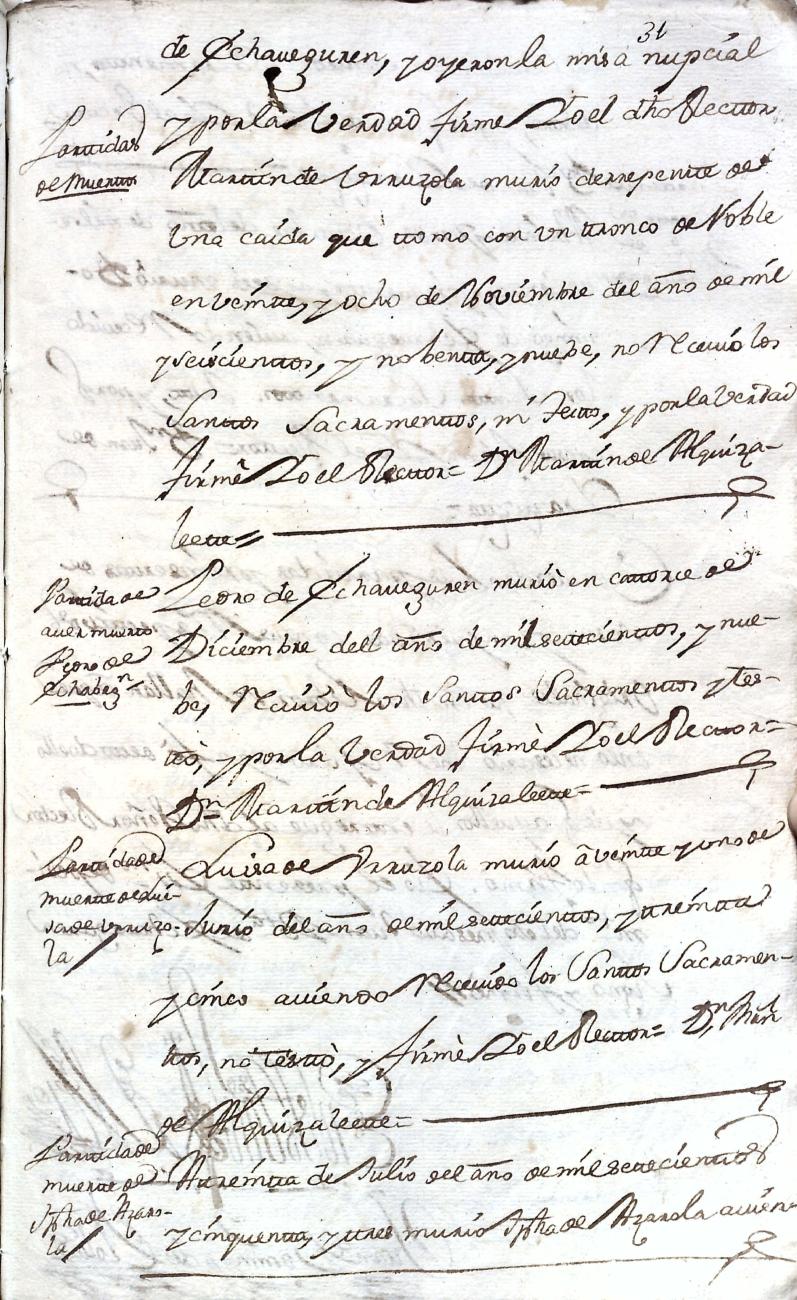 31
de Echaveguren, y oyeron la misa nupcial
y por la Verdad firmè Yo el dho Rector
Partidas
de Muertos
Martin de Urruzola murio derrepente de
una caida que ttomo con un ttronco de Roble
en veintte, y ocho de Noviembre del año de mil
y seiscienttos, y nobentta, y nuebe, no Recivio los
Santtos Sacramenttos, ni Testto, y por la verdad
firmè Yo el Recttor= Dn Marttin de Alquiza-
leette=
Parttida de
aver muertto
Pedro de
Echabegn
Pedro de Echaveguren muriò en cattorce de
Diciembre dell año de mil settecienttos, y nue-
be, Recivio los Santtos Sacramenttos y tes-
ttò, y por la verdad firmè Yo el Recttor=
Dn Marttin de Alquizaleette=
Parttida de
muertte de Lui-
sa de Urruzo-
la
Luisa de Urruzola murio â veintte y uno de
Junio del año de mil settecienttos, y ttreintta
y cinco aviendo Recivido los Santtos Sacramen-
ttos, no testtò, y firmè Yo el Recttor= Dn Mrn
de Alquizaleette=
Parttida de
muertte de
Jpha de Azaro-
la
A ttreintta de Julio del año de mil settecienttos
y cinquentta, y ttres murio Jpha de Azarola avien-